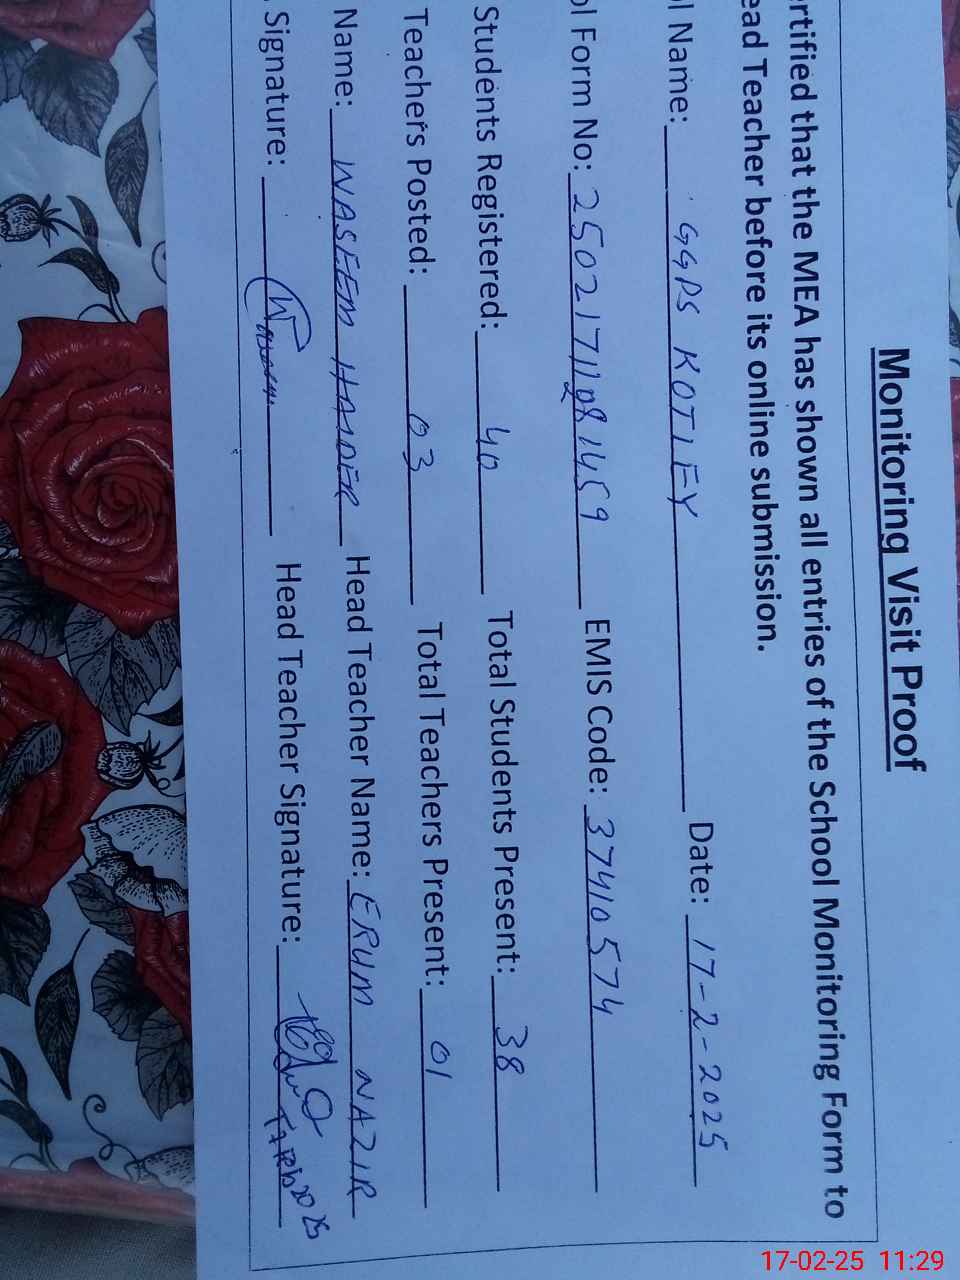 Monitoring Visit Proof
rtified that the MEA has shown all entries of the School Monitoring Form to
ead Teacher before its online submission.
l Name: GGPS KOTLEY Date: 17-2-2025
ol Form No: EMIS Code: 37410574
Students Registered: 40 Total Students Present: 38
Teachers Posted: 03 Total Teachers Present: 01
Name: WASEEM HAIDER Head Teacher Name: ERUM NAZIR
Signature: Head Teacher Signature:
17-02-25 11:29